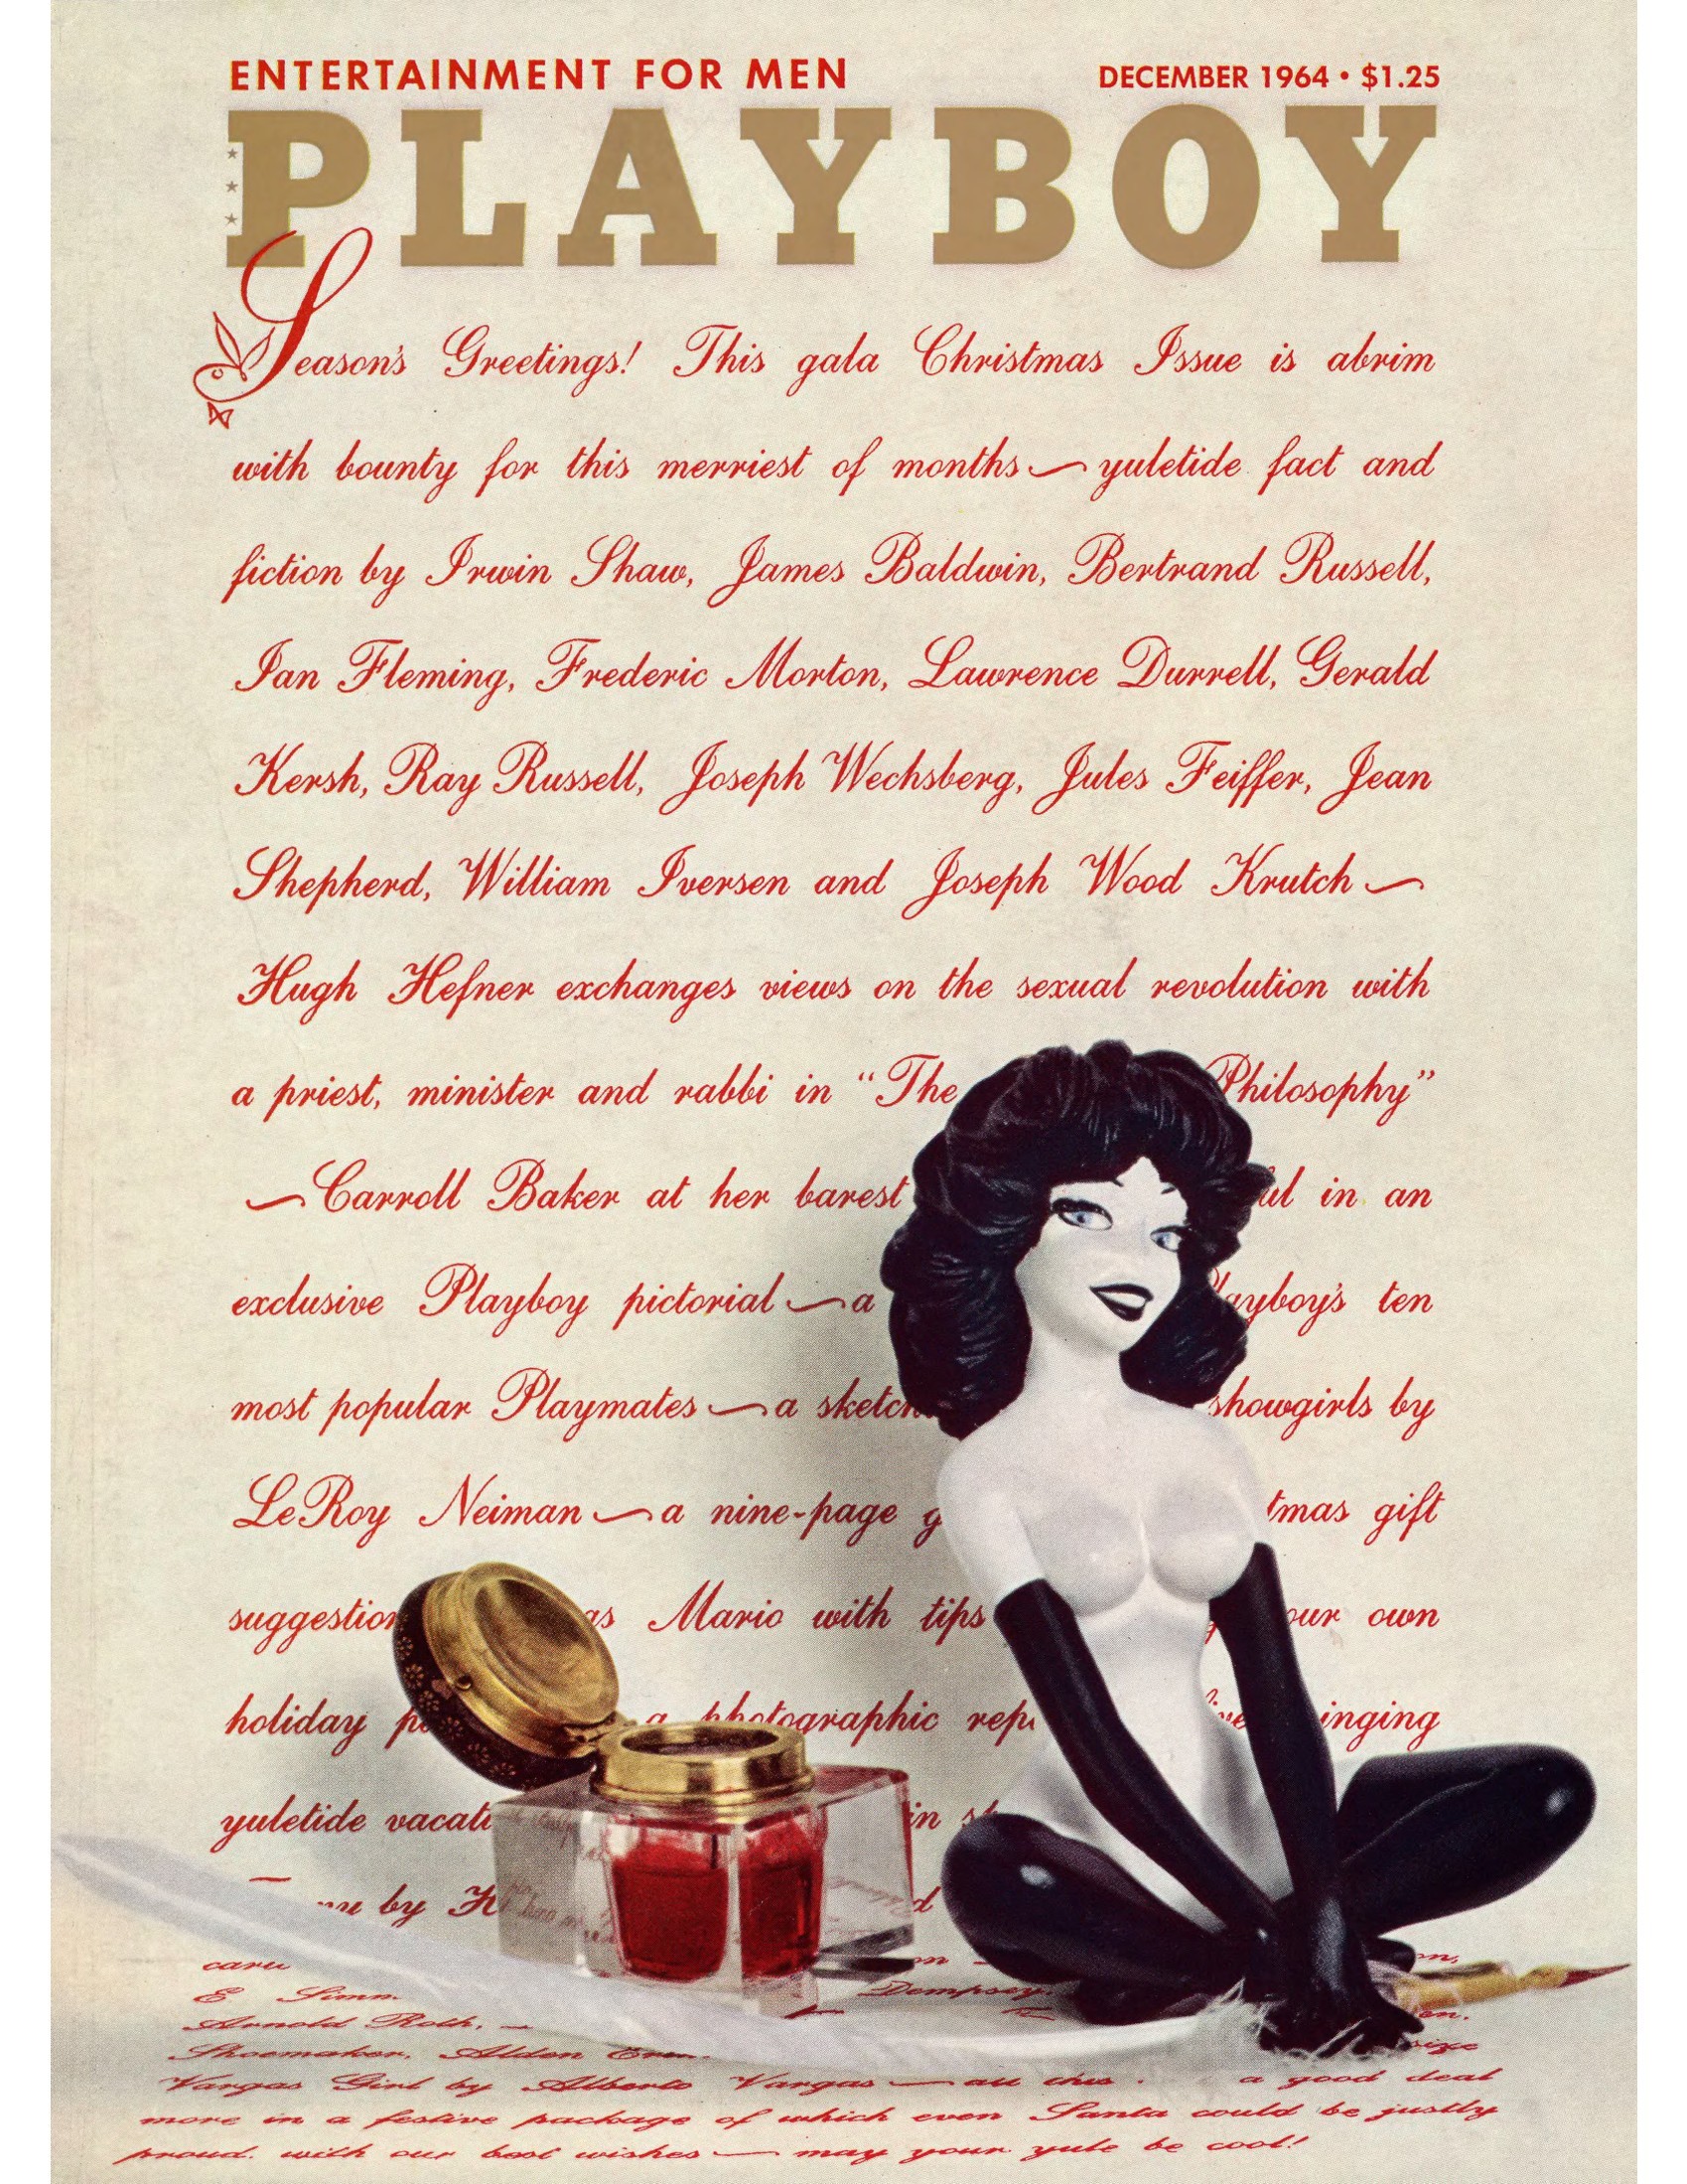 ENTERTAINMENT FOR MEN
DECEMBER 1964 • $1.25
PLAYBOY
Season's Greetings! This gala Christmas Issue is abrim
with bounty for this merriest of months — yuletide fact and
fiction by Irwin Shaw, James Baldwin, Bertrand Russell,
Ian Fleming, Frederic Morton, Lawrence Durrell, Gerald
Kersh, Ray Russell, Joseph Wechsberg, Jules Feiffer, Jean
Shepherd, William Iversen and Joseph Wood Krutch —
Hugh Hefner exchanges views on the sexual revolution with
a priest, minister and rabbi in “The Philosophy”
— Carroll Baker at her barest in an
exclusive Playboy pictorial — a ten
most popular Playmates — a showgirls by
LeRoy Neiman — a nine-page gift
Mario with tips own
holiday a photographic
yuletide in
by
E.
Dempsey.
Arnold Roth, —
Shoemaker, Alden
Vargas Girl by Alberto Vargas — a good deal
more in a festive package of which even Santa could be justly
proud. with our best wishes — may your yule be cool!